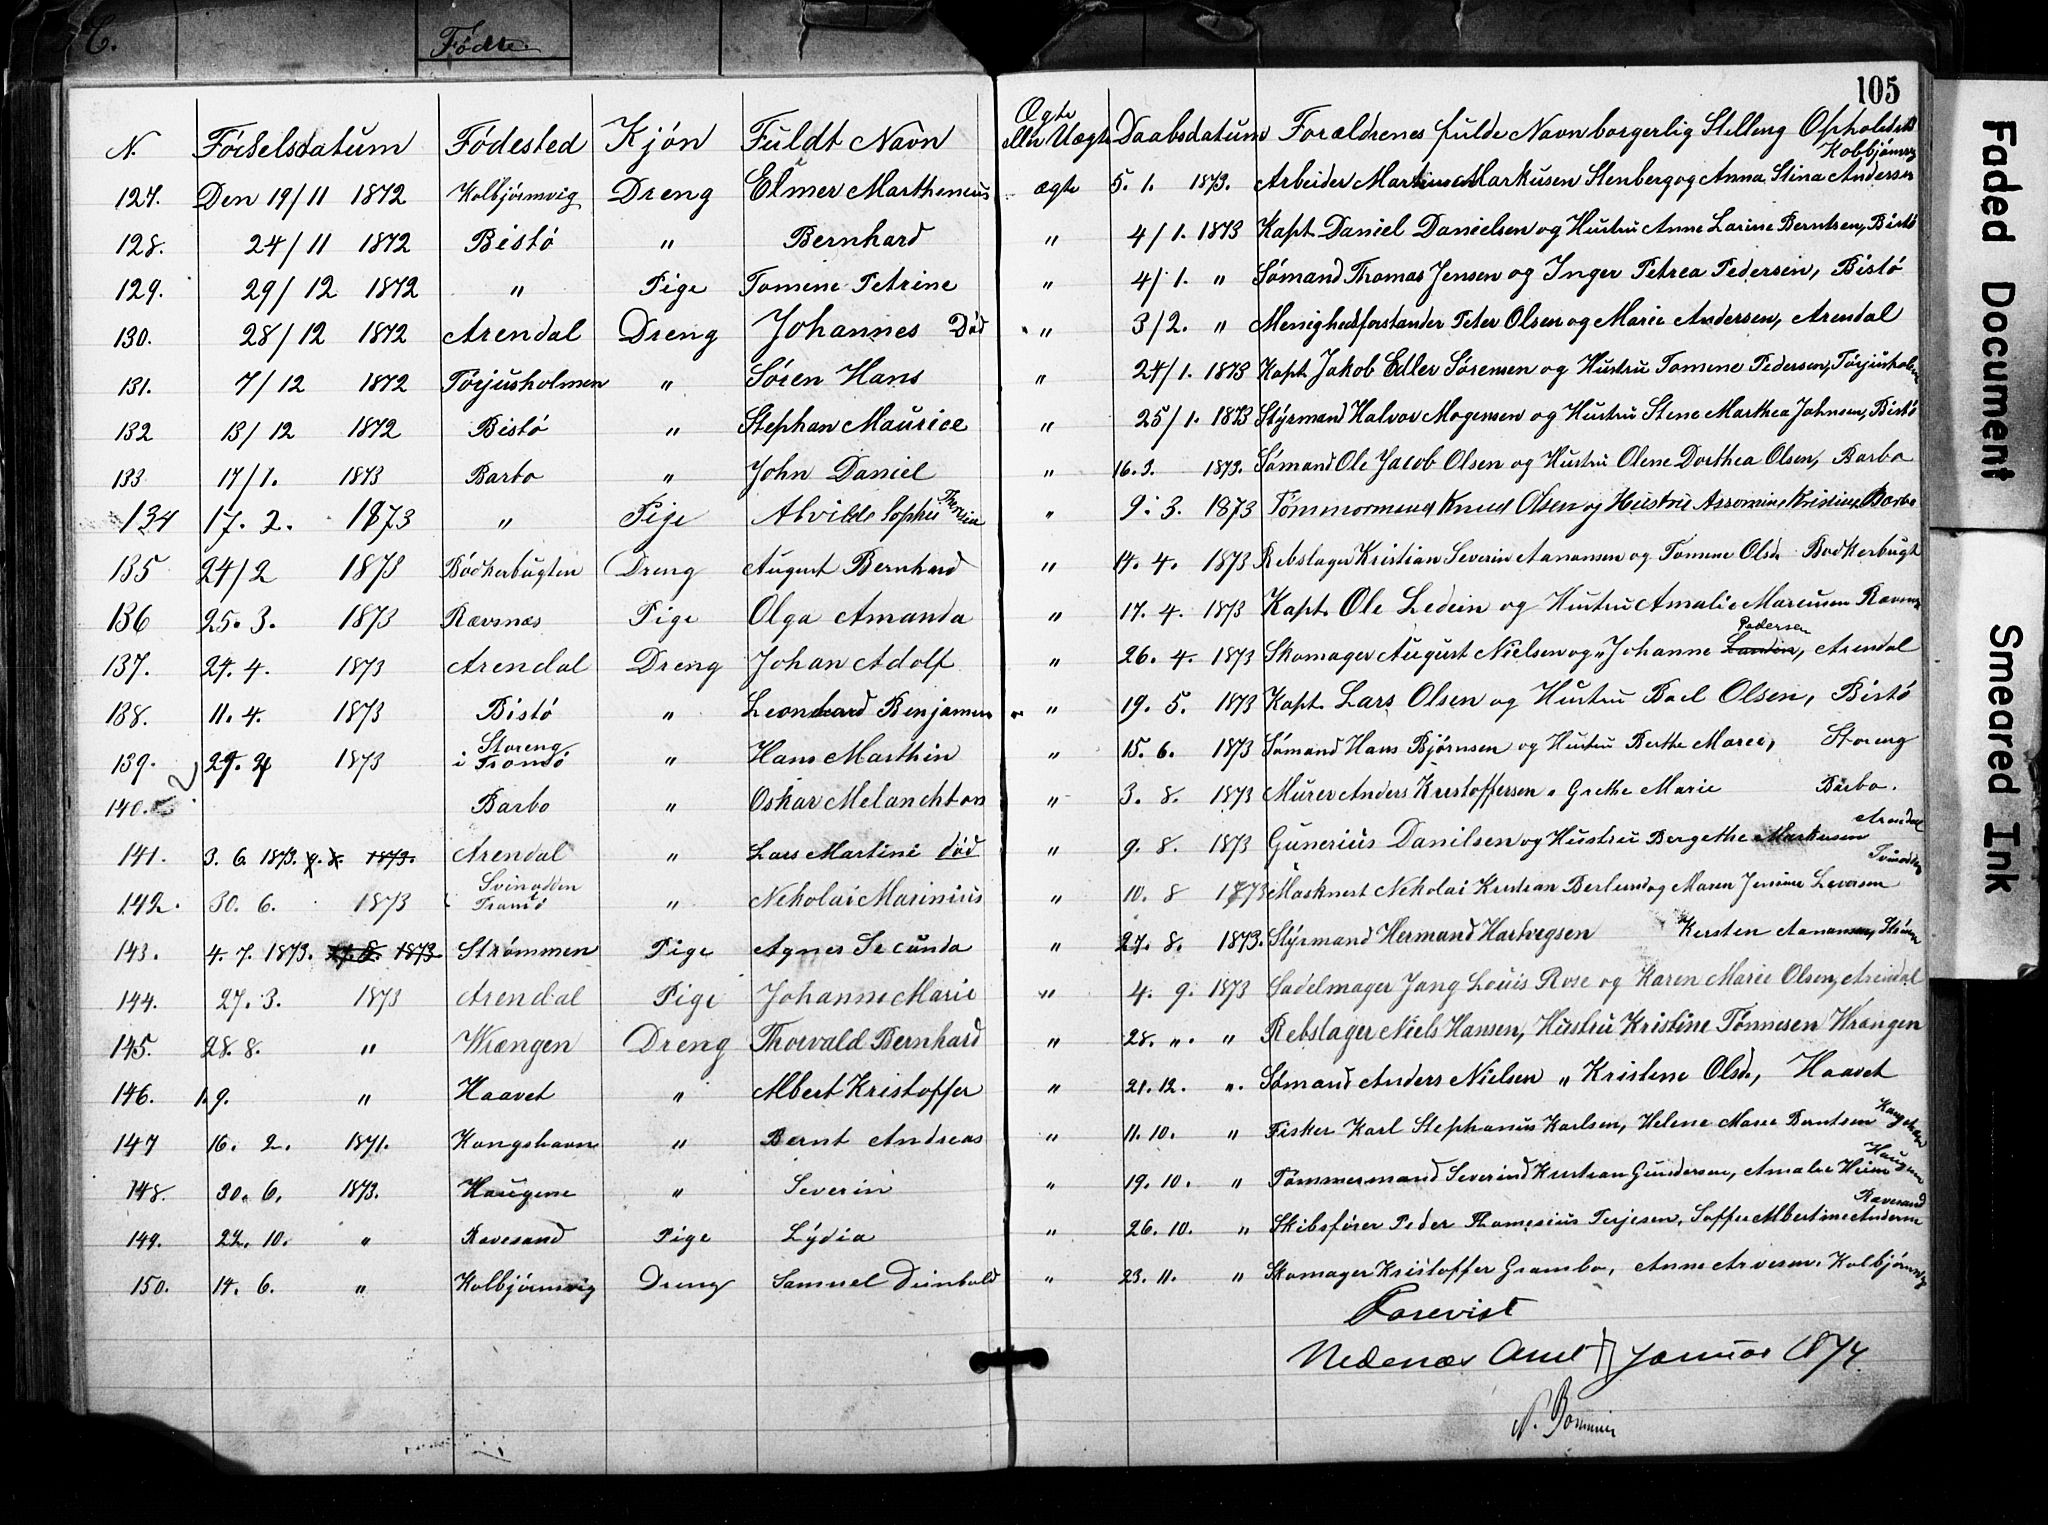 C.
Fødte.
105
N. Fødselsdatum Fødested Kjön Fuldt Navn Ægte eller Uægte Daabsdatum Forældrenes fulde Navn borgerlig Stelleng Opholdsted
127. Den 19/11 1872 Kolbjörnsvig Dreng Elmer Martheneus ægte 5. 1. 1873. Arbeider Martines Markusen Stenberg og Anna Stina Andersen Kobbjörnsvg
128. 24/11 1872 Bistö " Bernhard " 4/1. 1873 Kapt. Daniel Danielsen og Hustru Anne Larine Berntsen, Bistö
129. 29/12 1872 " Pige Tomene Petrine " 4/1. " Sömand Thomas Jensen og Inger Petrea Pedersen, Bistö
130. 28/12 1872 Arendal Dreng Johannes Död " 3/2. " Menighedsforstander Peter Olsen og Marie Andersen, Arendal
131. 7/12 1872 Törjusholmen " Sören Hans " 24/1. 1873 Kapt. Jakob Edler Sörensen og Hustru Tomene Pedersen, Törjusholm
132 13/12 1872 Bistö " Stephan Maurice " 25/1. 1873 Styrmand Halvor Mogensen og Hustru Stene Marthea Johnsen, Bistö
133 17/1. 1873 Barbo " John Daniel " 16. 3. 1873. Sömand Ole Jacob Olsen og Hustru Olene Dorthea Olsen, Barbo
134 17. 2. 1873 " Pige Alvilde Sophie " 9. 3. 1873 Tömmermand Knud Olsen og Hustru Kristine Barbo
135 24/2 1873 Bödkerbugten Dreng August Bernhard " 14. 4. 1873 Rebslager Kristian Severin Aanonsen og Tomene Olsd. Bodkerbugt
136 25. 3. 1873 Rævsnæs Pige Olga Amanda " 17. 4. 1873 Kapt. Ole Ledein og Hustru Amalie Marcusen
137. 24. 4. 1873 Arendal Dreng Johan Adolf " 26. 4. 1873 Skomager August Nielsen og " Johanne Landin, Pedersen Arendal
138. 11. 4. 1873 Bistö " Leonhard Benjamen " 19. 5. 1873 Kapt. Lars Olsen og Hustru Boel Olsen, Bistö
139. 29. 4 1873 Storeng i Tromö " Hans Marthin " 15. 6. 1873 Sömand Hans Björnsen og Hustru Berthe Marie, Storeng
140. 2 Barbo " Oskar Melanchton " 3. 8. 1873 Murer Anders Kristoffersen " Grethe Marie Barbo.
141. 3. 6. 1873. 9. 8. 1873. Arendal " Lars Martini död " 9. 8. 1873 Gunerius Danilsen og Hustru Bergethe Markusen Arendal
142. 30. 6. 1873 Svinodden Tromö " Nekolai Marinius " 10. 8 1873 Masknest Nekolai Kristian Berlund og Maren Jensine Leversen Svinodden
143. 4. 7. 1873. 27. 8. 1873. Strömmen Pige Agnes Secunda " 27. 8. 1873. Styrmand Hermand Hartvigsen Kersten Aanonsen,
144. 27. 3. 1873 Arendal Pige Johanne Marie " 4. 9. 1873 Sadelmager Jang Louis Rose og Karen Marie Olsen, Arendal
145. 28. 8. " Wrængen Dreng Thorvald Bernhard " 28. ". " Rebslager Niels Hansen, Hustru Kristine Tönnesen Wrængen
146. 1. 9. " Haavet " Albert Kristoffer " 21. 12. ". Sömand Anders Nielsen " Kristene Olsd., Haavet
147 16. 2. 1871. Kongshavn " Bernt Andreas " 11. 10. " Fisker Karl Stephanus Karlsen, Helene Marie Berntsen Kongshavn
148. 30. 6. 1873. Haugene " Severin " 19. 10. " Tömmermand Severind Kristian Gundersen, Amalie Haugene
149. 22. 10. " Ravesand Pige Lydia " 26. 10. " Skibsförer Peder Thomesius Terjesen, Soffie Albertine Andersen Ravesand
150. 14. 6. " Kolbjörnsvig Dreng Samuel " 23. 11. " Skomager Kristoffer Grambo, Anne Arvesen. Kolbjörnsvig
Forevist
Nedenæs Amt Januar 1874.
Faded Document
Smeared Ink